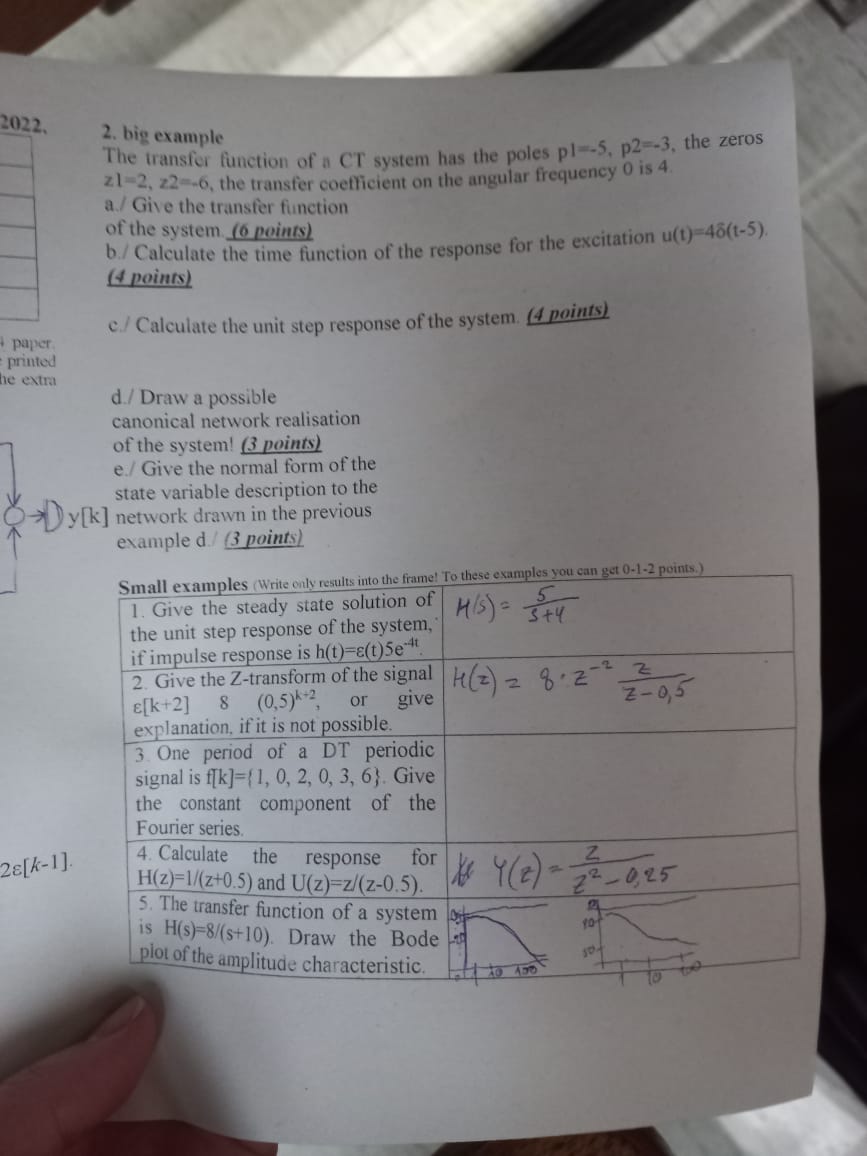 2022.
2. big example
The transfer function of a CT system has the poles p1=-5, p2=-3, the zeros
z1=2, z2=-6, the transfer coefficient on the angular frequency 0 is 4.
a./ Give the transfer function
of the system. (6 points)
b./ Calculate the time function of the response for the excitation u(t)=4δ(t-5).
(4 points)
c./ Calculate the unit step response of the system. (4 points)
paper.
printed
he extra
d./ Draw a possible
canonical network realisation
of the system! (3 points)
e./ Give the normal form of the
state variable description to the
y[k] network drawn in the previous
example d./ (3 points)
Small examples (Write only results into the frame! To these examples you can get 0-1-2 points.)
1. Give the steady state solution of
the unit step response of the system,
if impulse response is h(t)=ε(t)5e^-4t.
H(s) = 5/(s+4)
2. Give the Z-transform of the signal
ε[k+2] 8 (0,5)^k+2, or give
explanation, if it is not possible.
H(z) = 8·z^-2 z/(z-0,5)
3. One period of a DT periodic
signal is f[k]={1, 0, 2, 0, 3, 6}. Give
the constant component of the
Fourier series.
2ε[k-1].
4. Calculate the response for
H(z)=1/(z+0.5) and U(z)=z/(z-0.5).
Y(z) = z/(z²-0,25)
5. The transfer function of a system
is H(s)=8/(s+10). Draw the Bode
plot of the amplitude characteristic.
1 10 100
1 10